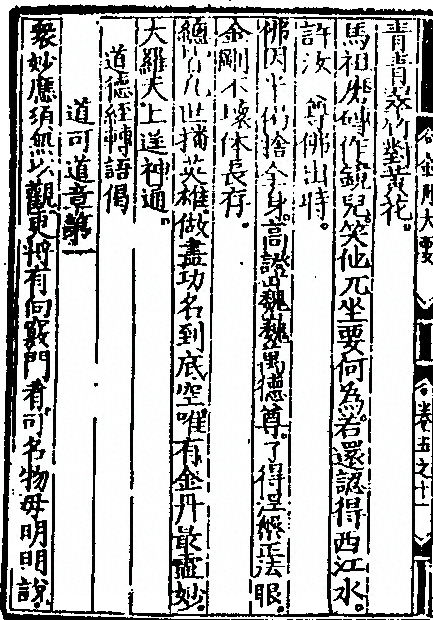 青青翠竹對黃花。
馬祖磨磚作鏡兒。笑他兀坐要何為。若還認得西江水。
許汝 尊佛出時。
佛因半偈捨全身。高證巍巍萬德尊。了得涅槃正法眼。
金剛不壞体長存。
總是凡世播英雄。做盡功名到底空。唯有金丹最靈妙。
大羅天上逞神通。
道德經轉語偈
道可道章第一
衆妙應須無以觀。更將有向竅門看。可名物母明明說。
卷五之十一